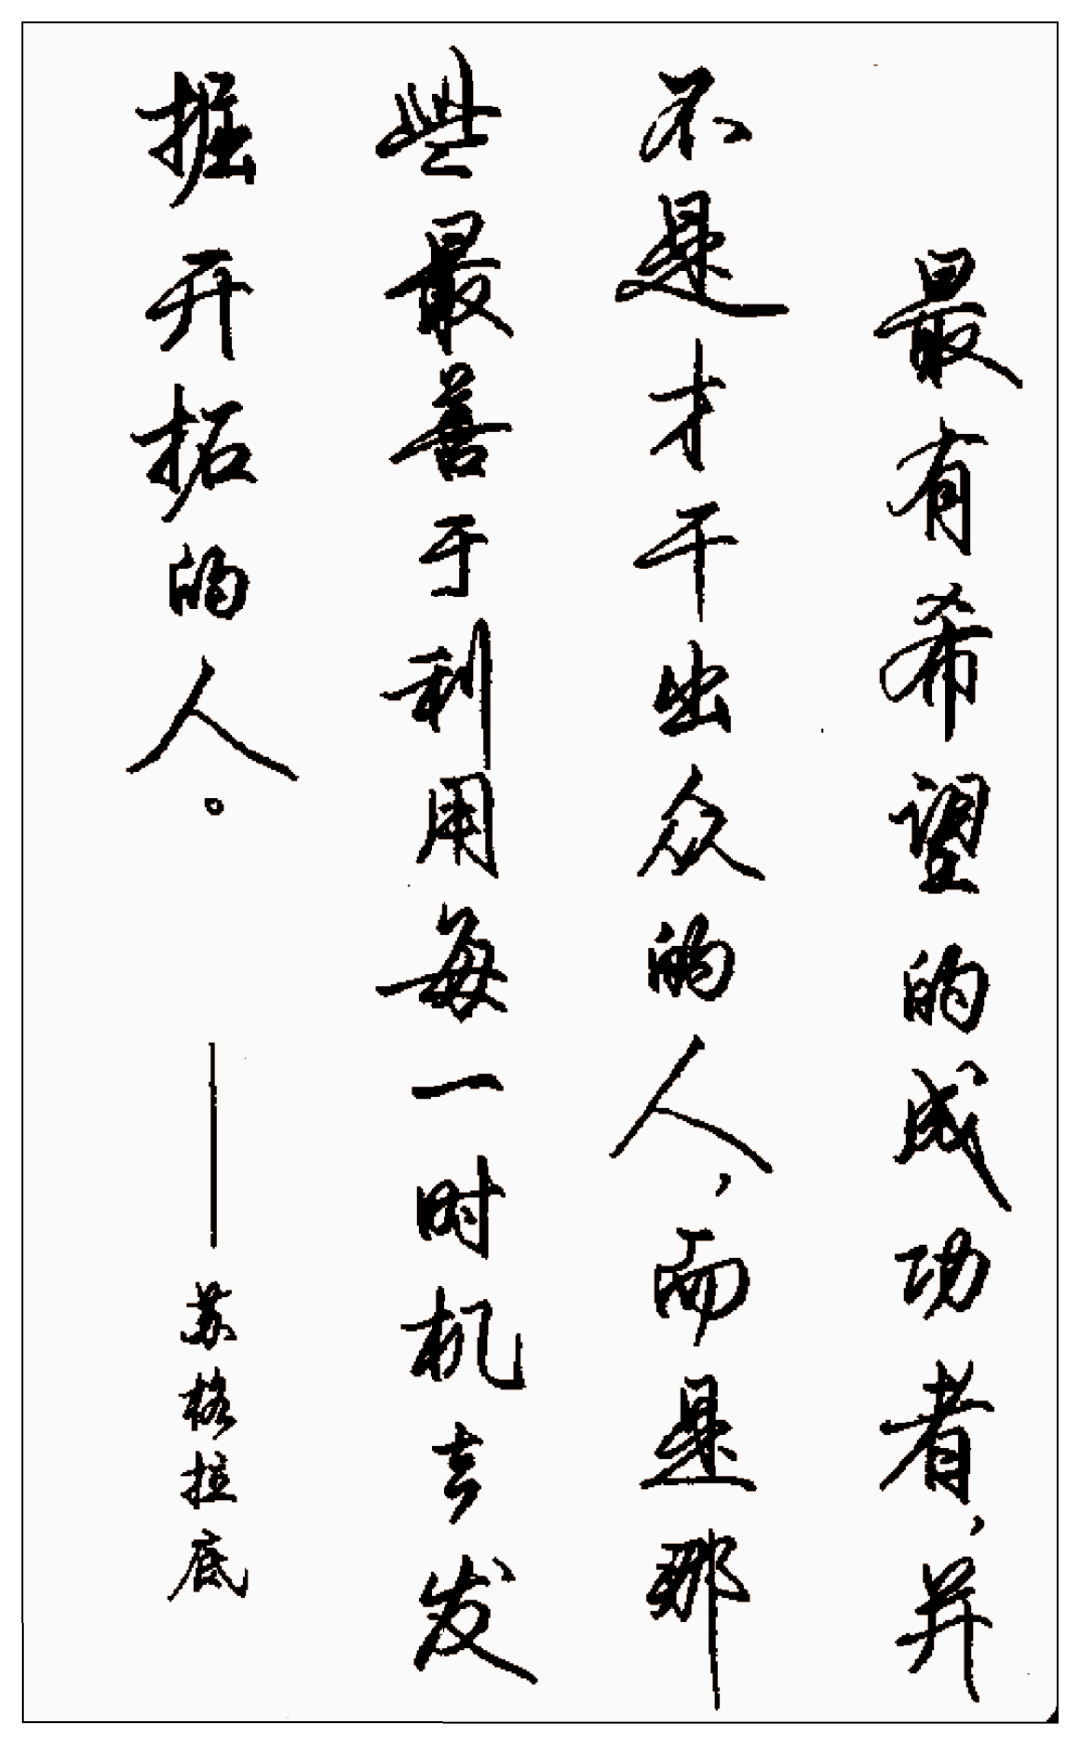 最有希望的成功者，并
不是才干出众的人，而是那
些最善于利用每一时机去发
掘开拓的人。
——苏格拉底